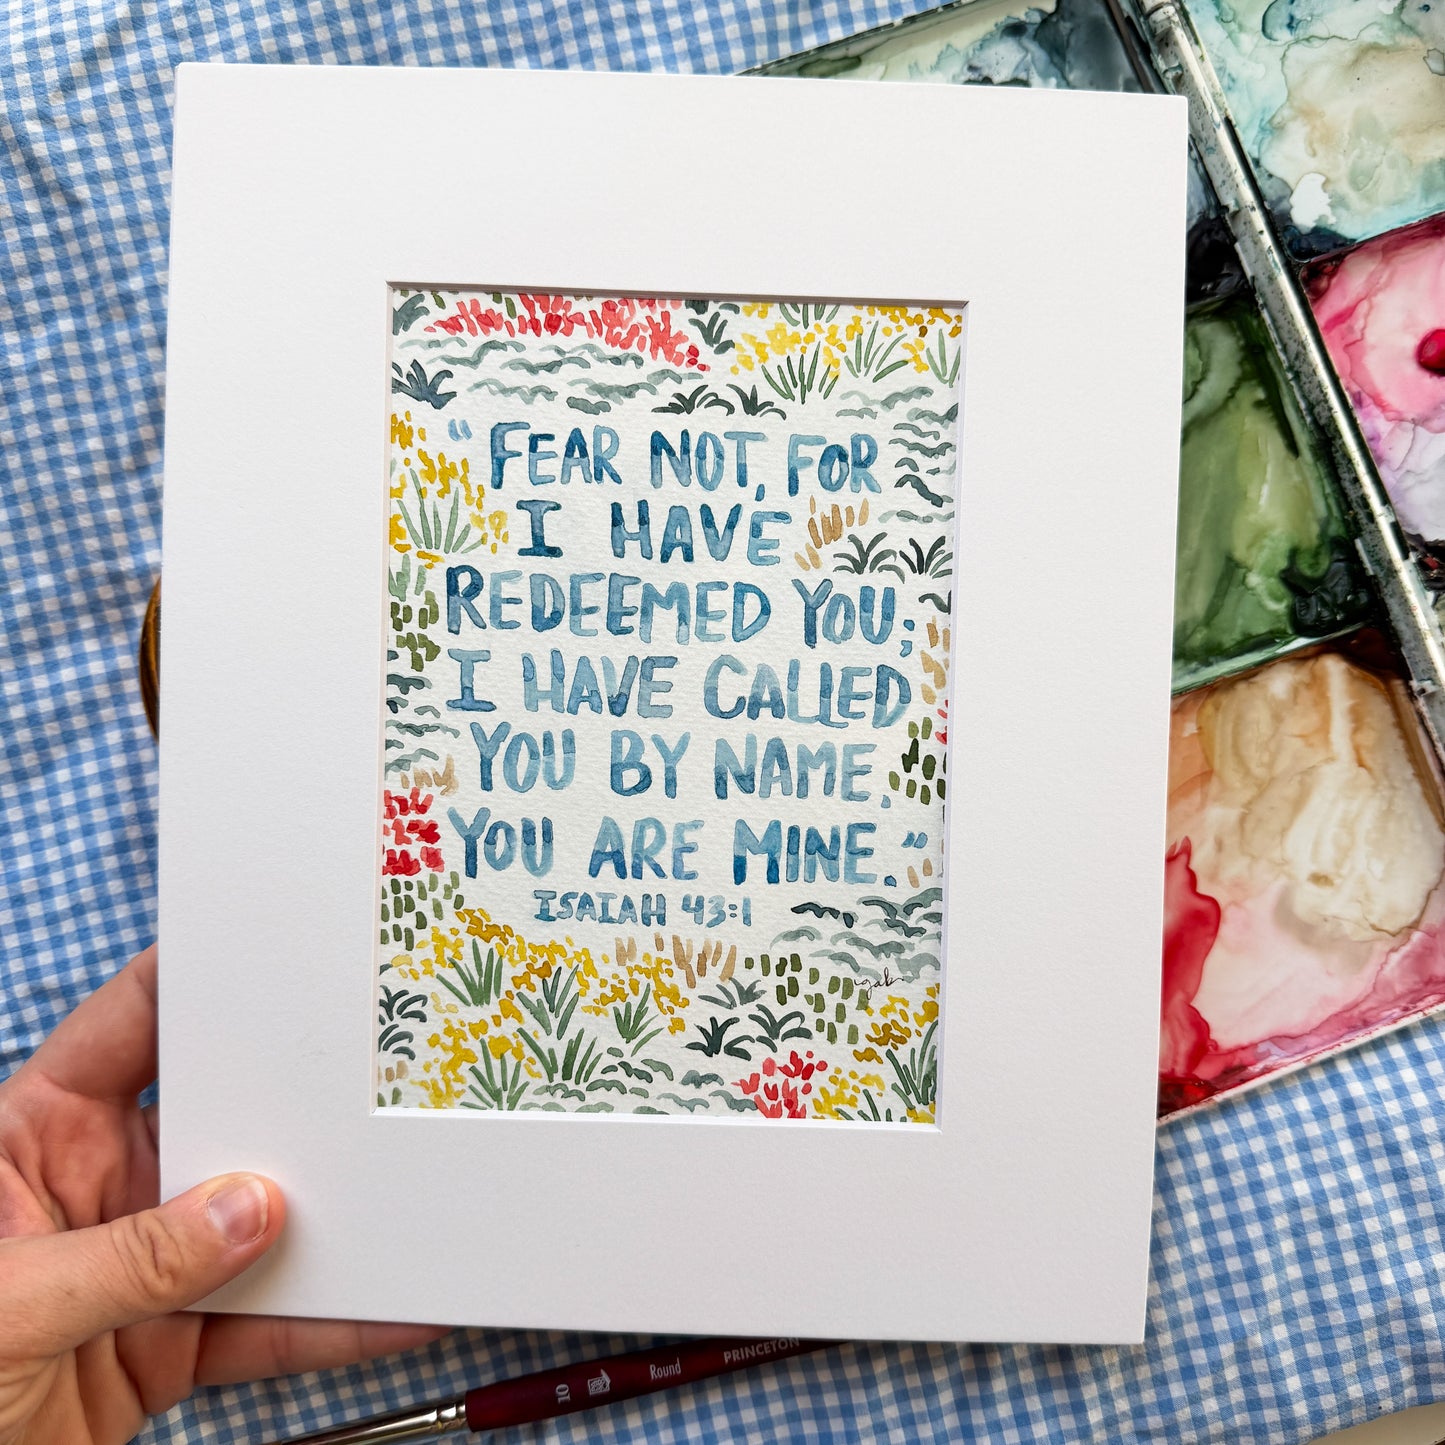 “FEAR NOT, FOR
I HAVE
REDEEMED YOU;
I HAVE CALLED
YOU BY NAME,
YOU ARE MINE.”
ISAIAH 43:1
gab
10 Round PRINCETON